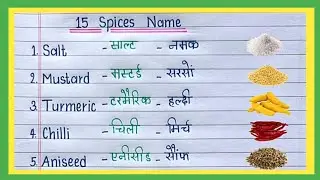 15 Spices Name
1. Salt - साल्ट - नमक
2. Mustard - मस्टर्ड - सरसों
3. Turmeric - टरमैरिक - हल्दी
4. Chilli - चिली - मिर्च
5. Aniseed - एनीसीड - सौंफ